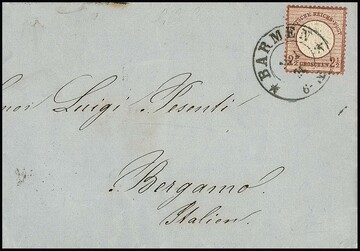 DEUTSCHE REICHS-POST
2½ GROSCHEN 2½
BARMEN
noi Luigi Pesenti
Bergamo
Italien.